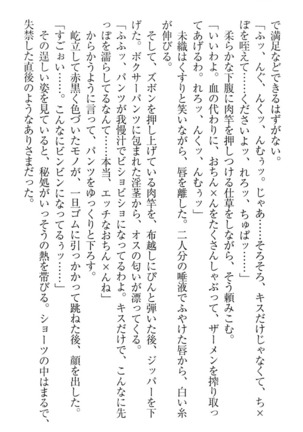 で満足などできるはずがない。
「ふッ、んぐ、んくッ、んむぅッ。じゃあ……そろそろ、キスだけじゃなくて、ち×
ぽを咥えて……くださいよッ。れろッ、ちゅぱッ……」
柔らかな下腹に肉竿を押しつける仕草をしながら、そう頼みこむ。
「いいわよ。血の代わりに、おち×んをたくさんしゃぶって、ザーメンを搾り取っ
てあげるわね。れろッ、んくッ、んむぅッ」
未織はくすりと笑いながら、唇を離した。二人分の唾液でふやけた唇から、白い糸
が伸びる。
そして、ズボンを押し上げている肉竿を、布越しにぴんと弾いた後、ジッパーを下
げた。ボクサーパンツに包まれた淫茎から、オスの匂いが漂ってくる。
「ふふッ、パンツが我慢汁でビショビショになってるわよ。キスだけで、こんなに先
っぽを濡らしてるなんて……本当、エッチなおちん×んね」
からかうように言って、パンツをゆっくりと下ろす。
屹立して赤黒く色づいたモノが、一旦ゴムに引っかかって跳ねた後、顔を出した。
「すごぉい……。こんなにビンビンになってるぅッ……」
その逞しい姿を見ていると、秘処がいっそうの熱を帯びる。ショーツの中はまるで、
失禁した直後のようなありさまだった。